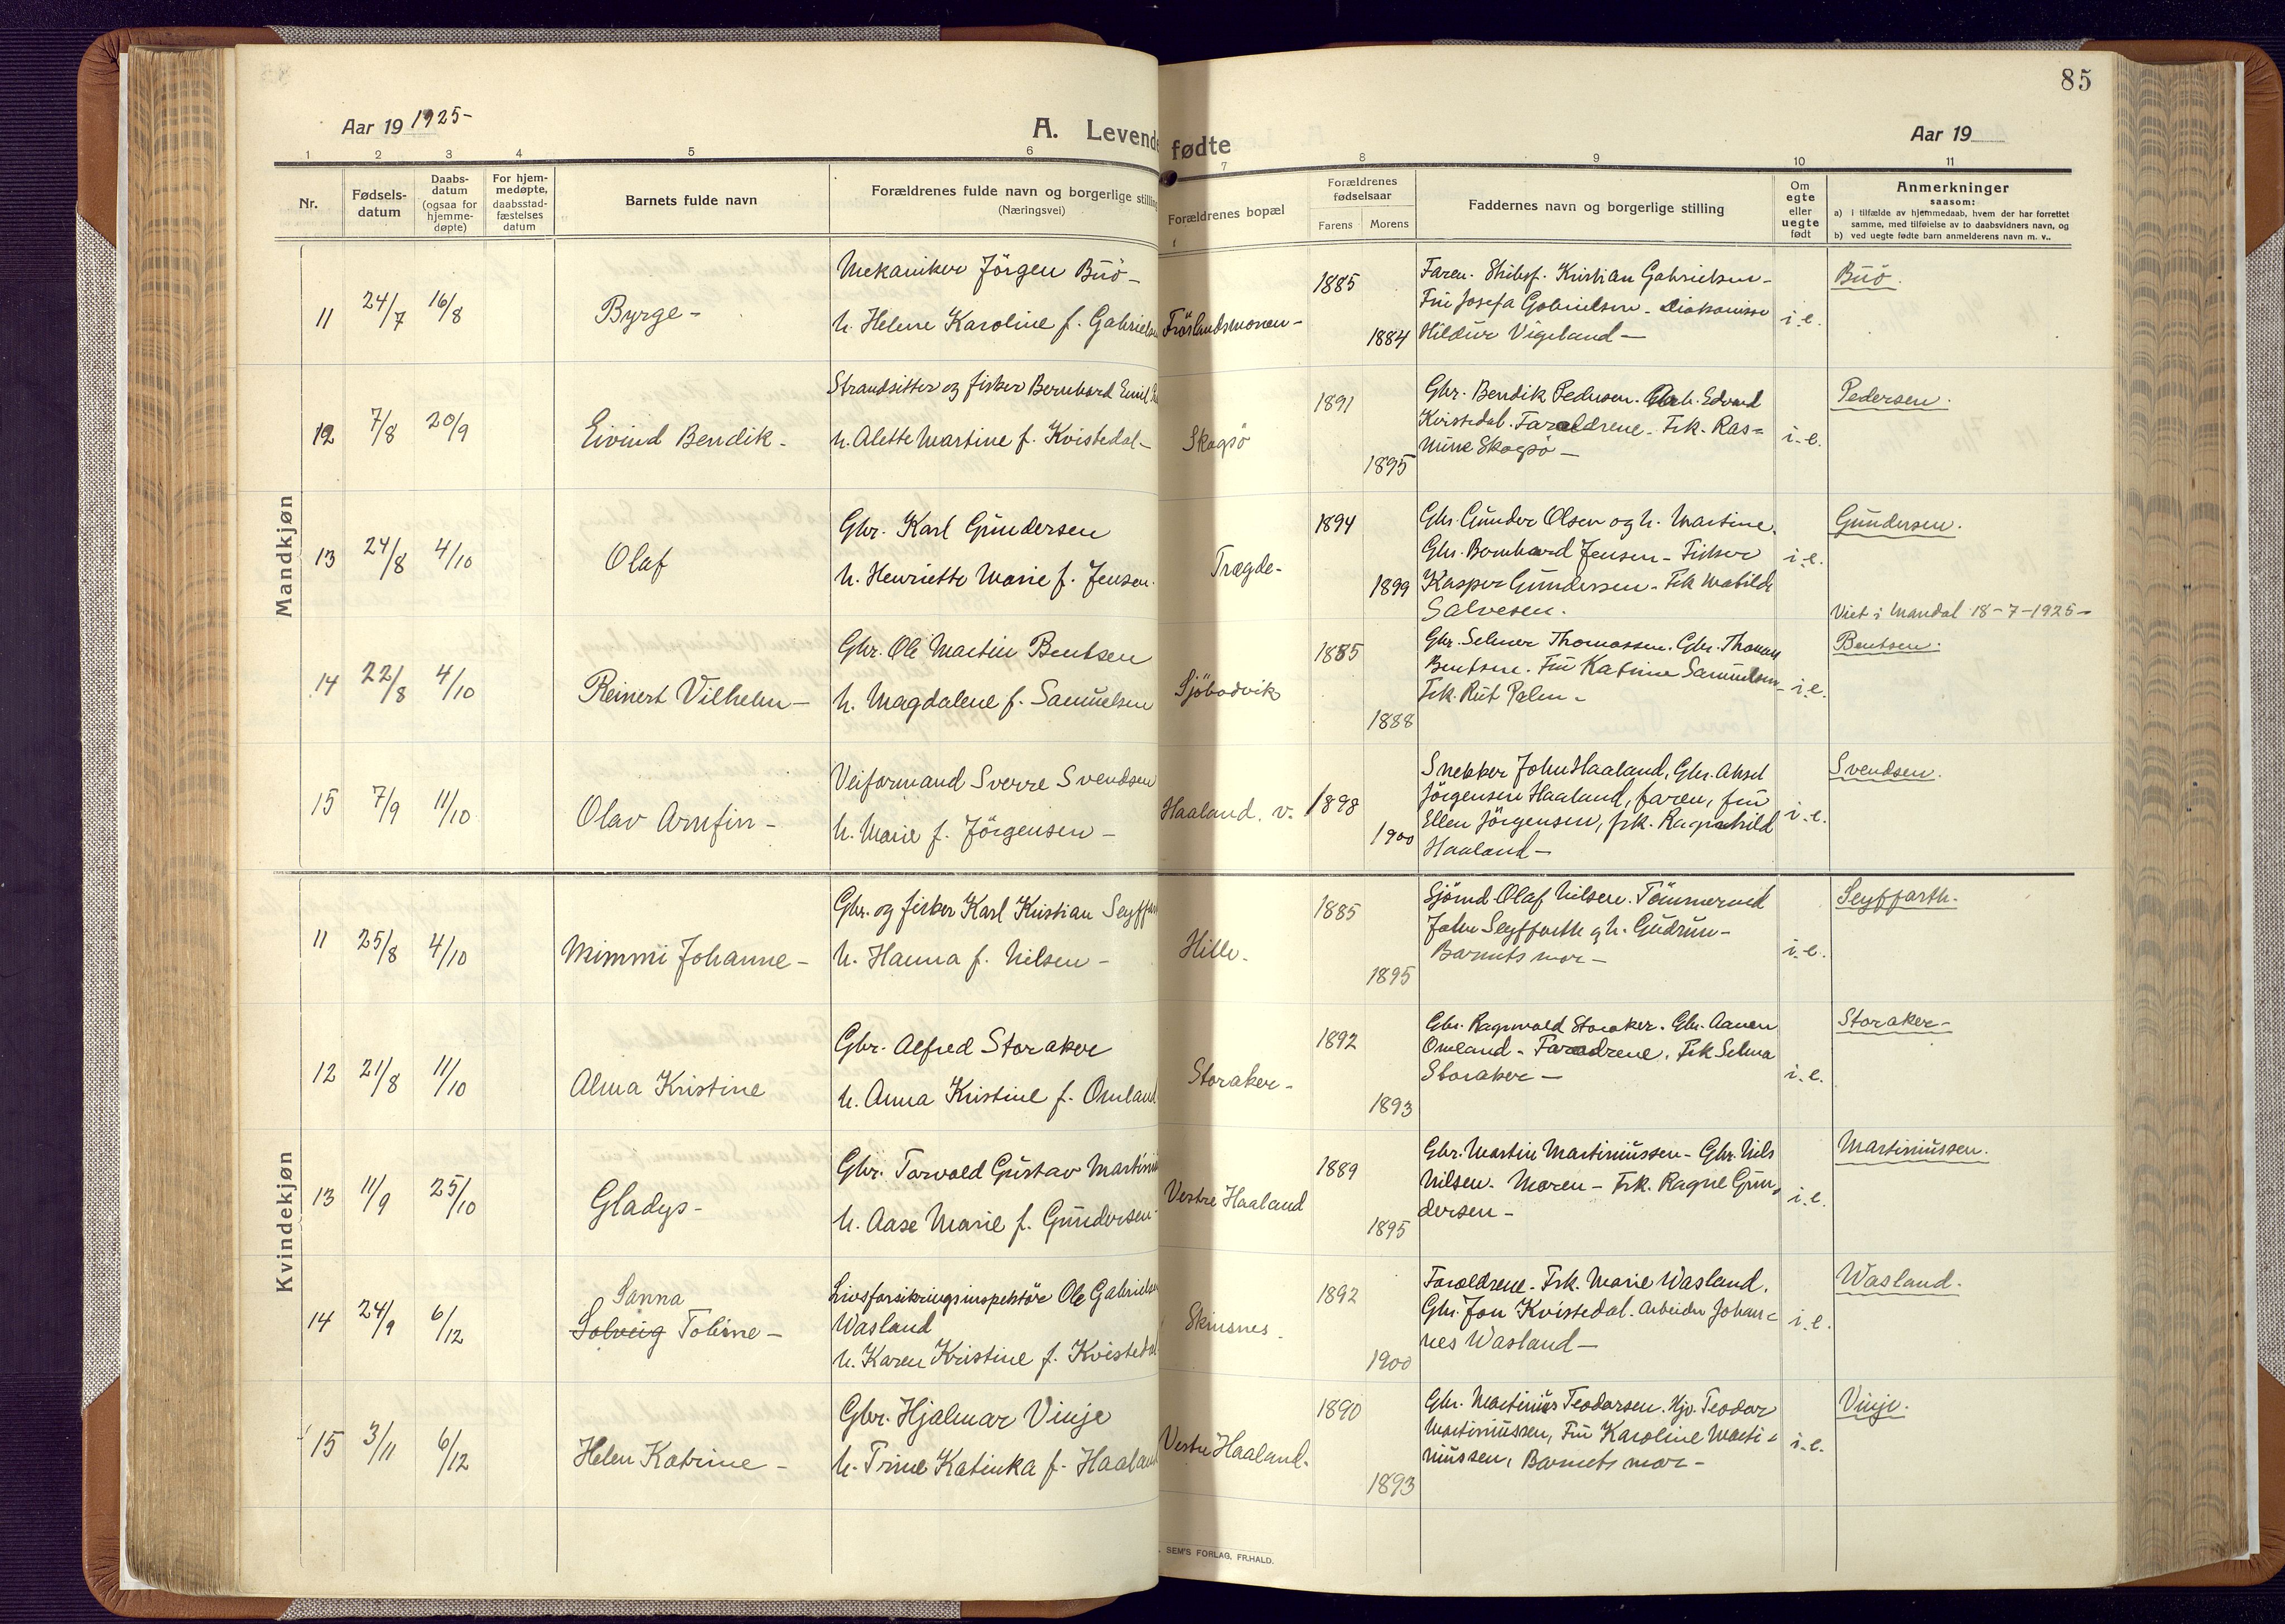 85
Aar 19 1925-
A. Levende fødte
Aar 19
1 2 3 4 5 6 7 8 9 10 11
Nr.
Fødsels-
datum
Daabs-
datum
(ogsaa for
hjemme-
døpte)
For hjem-
medøpte,
daabsstad-
fæstelses
datum
Barnets fulde navn
Forældrenes fulde navn og borgerlige stilling
(Næringsvei)
Forældrenes bopæl
Forældrenes
fødselsaar
Farens Morens
Faddernes navn og borgerlige stilling
Om
egte
eller
uegte
født
Anmerkninger
saasom:
a) I tilfælde av hjemmedaab, hvem der har forrettet
samme, med tilføielse av to daabsvidners navn, og
b) ved uegte fødte barn anmelderens navn m. v..
Mandkjøn
11 24/7 16/8 Byrge-
Mekaniker Jörgen Buö-
h. Helene Karoline f. Gabrielsen
1885
1884
Faren. Kristian Gabrielsen-
Fru Josefa Gabrielsen. Diakonisse
Hildur Vigeland-
i.e.
Buö.
12 7/8 20/9 Eivind Bendik-
Strandsitter og fisker Bernhard Emil
h. Alette Martine f. Kvistedal-
Skogsö
1891
1895
Gbr. Bendik Pedersen. Edvard
Kvistedal. Foraeldrene. Frk. Ras=
mine Skogsö-
i-e.
Pedersen.
13 24/8 4/10 Olaf
Gbr. Karl Gundersen
h. Henriette Marie f. Jensen.
Trægde-
1894
1899
Gbr. Gunder Olsen og h. Martine.
Gbr. Bernhard Jensen- Fisker
Kasper Gundersen. Frk Matilde
Salvesen.
i.e.
Gundersen.
Viet i Mandal 18-7-1925-
14 22/8 4/10 Reinert Vilhelm-
Gbr. Ole Martin Bentsen
h. Magdalene f. Samuelsen
Sjöbodvik
1885
1888
Gbr. Selmer Thomassen. Gbr. Thomas
Bentsen. Fru Katrine Samuelsen
Frk. Rut Palen-
i.e.
Bentsen.
15 7/9 11/10 Olav Arnfin-
Veiformand Sverre Svendsen
h. Marie f. Jörgensen-
Haaland. v.
1898
1900
Snekker John Haaland, Gbr. Aksel
Jörgensen Haaland, faren, fru
Ellen Jörgensen, frk. Ragnhild
Haaland-
i-e.
Svendsen.
Kvindekjøn
11 25/8 4/10 Mimmi Johanne-
Gbr. og fisker Karl Kristian Seyffarth
h. Hanna f. Nilsen-
Hille.
1885
1895
Sjömd Olaf Nilsen. Tömmermd
John Seyffarth og h. Gudrun-
Barnets mor-
i.e.
Seyffarth.
12 21/8 11/10 Alma Kristine
Gbr. Alfred Storaker
h. Anna Kristine f. Omland
Storaker-
1892
1893
Gbr. Ragnvald Storaker. Gbr. Aanen
Omland- Foraeldrene. Frk Selma
Storaker-
i.e.
Storaker-
13 11/9 25/10 Gladys-
Gbr. Torvald Gustav Martinius
h. Aase Marie f. Gundersen
Vestre Haaland
1889
1895
Gbr. Martin Martiniussen- Gbr. Nils
Nilsen. Moren- Frk. Ragne Gun=
dersen-
i.e.
Martiniussen.
14 24/9 6/12 Sanna
Solveig Tobine-
Livsforsikringsinspektör Ole Gabrielsen
Wasland
h. Karen Kristine f. Kvistedal
Skinsnes.
1892
1900
Foraeldrene. Frk. Marie Wasland.
Gbr. Jon Kvistedal. Arbeider Johan=
nes Wasland-
i.e.
Wasland.
15 3/11 6/12 Helen Katrine-
Gbr. Hjalmar Vinje
h. Trine Katinka f. Haaland
Vestre Haaland.
1890
1893
Gbr. Martinius Teodorsen. Teodor
Martiniussen, Fru Karoline Marti=
niussen, Barnets mor-
i.e.
Vinje.
SEM'S FORLAG, FR.HALD.